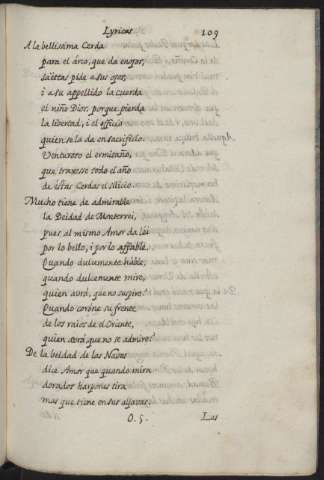 Lyricas 109
A la bellissima Cerda
para el árco, que da enojos,
saëttas pide a sus ojos,
i a su appellido la cuerda
el niño Dios, porque pierda
la libertad, i el officio
quien se la da en sacrificio.
Venturoso el ermitaño,
que traxesse todo el año
de essas Cerdas el silicio.
Mucho tiene de admirable
la Deidad de Monterrei,
pues al mismo Amor da lei
por lo bello, i por lo affable.
Quando dulcemente hable,
quando dulcemente mire,
quien avrá, que no suspire?
Quando corone su frente
de los raios de el Oriente,
quien será, que no se admire?
De la beldad de las Navas
dice Amor que quando mira
dorados harpones tira
mas que tiene en sus aljavas.
O. 5. Las